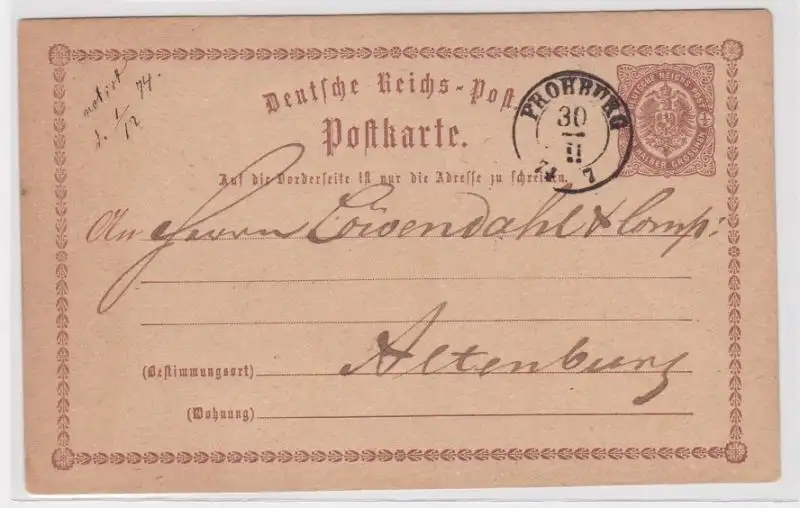 notirt
d. 1/12 74.
Deutsche Reichs-Post.
Postkarte.
FROHBURG
30
II
74 7
DEUTSCHE REICHS POST
EIN HALBER GROSCHEN
Auf die Vorderseite ist nur die Adresse zu schreiben.
An Herrn Löwendahl & Comp:
Altenburg
(Bestimmungsort)
(Wohnung)